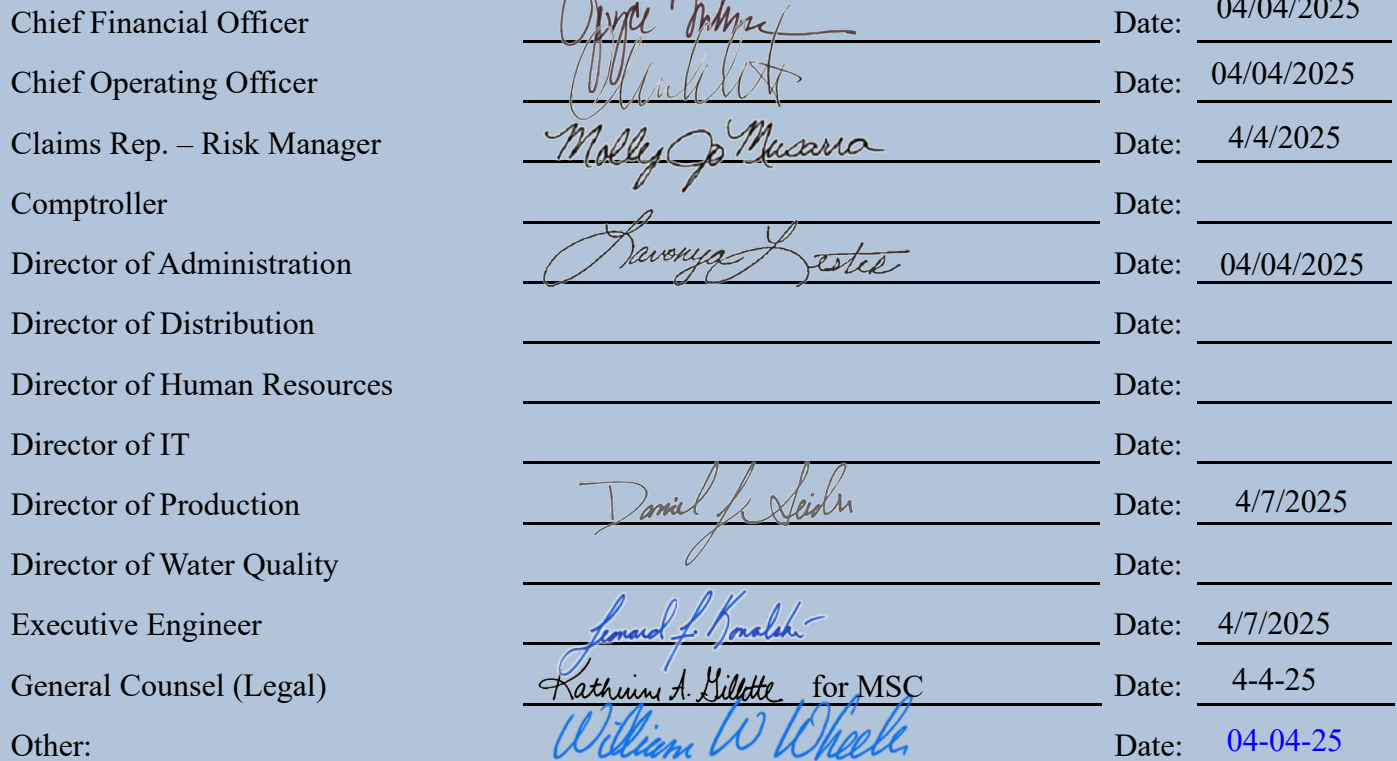 Chief Financial Officer Date: 04/04/2025
Chief Operating Officer Date: 04/04/2025
Claims Rep. – Risk Manager Molly Jo Musarra Date: 4/4/2025
Comptroller Date:
Director of Administration Lavonya Lester Date: 04/04/2025
Director of Distribution Date:
Director of Human Resources Date:
Director of IT Date:
Director of Production Daniel J. Date: 4/7/2025
Director of Water Quality Date:
Executive Engineer Leonard F. Kowalski Date: 4/7/2025
General Counsel (Legal) Katherine A. Gillette for MSC Date: 4-4-25
Other: William W Wheeler Date: 04-04-25